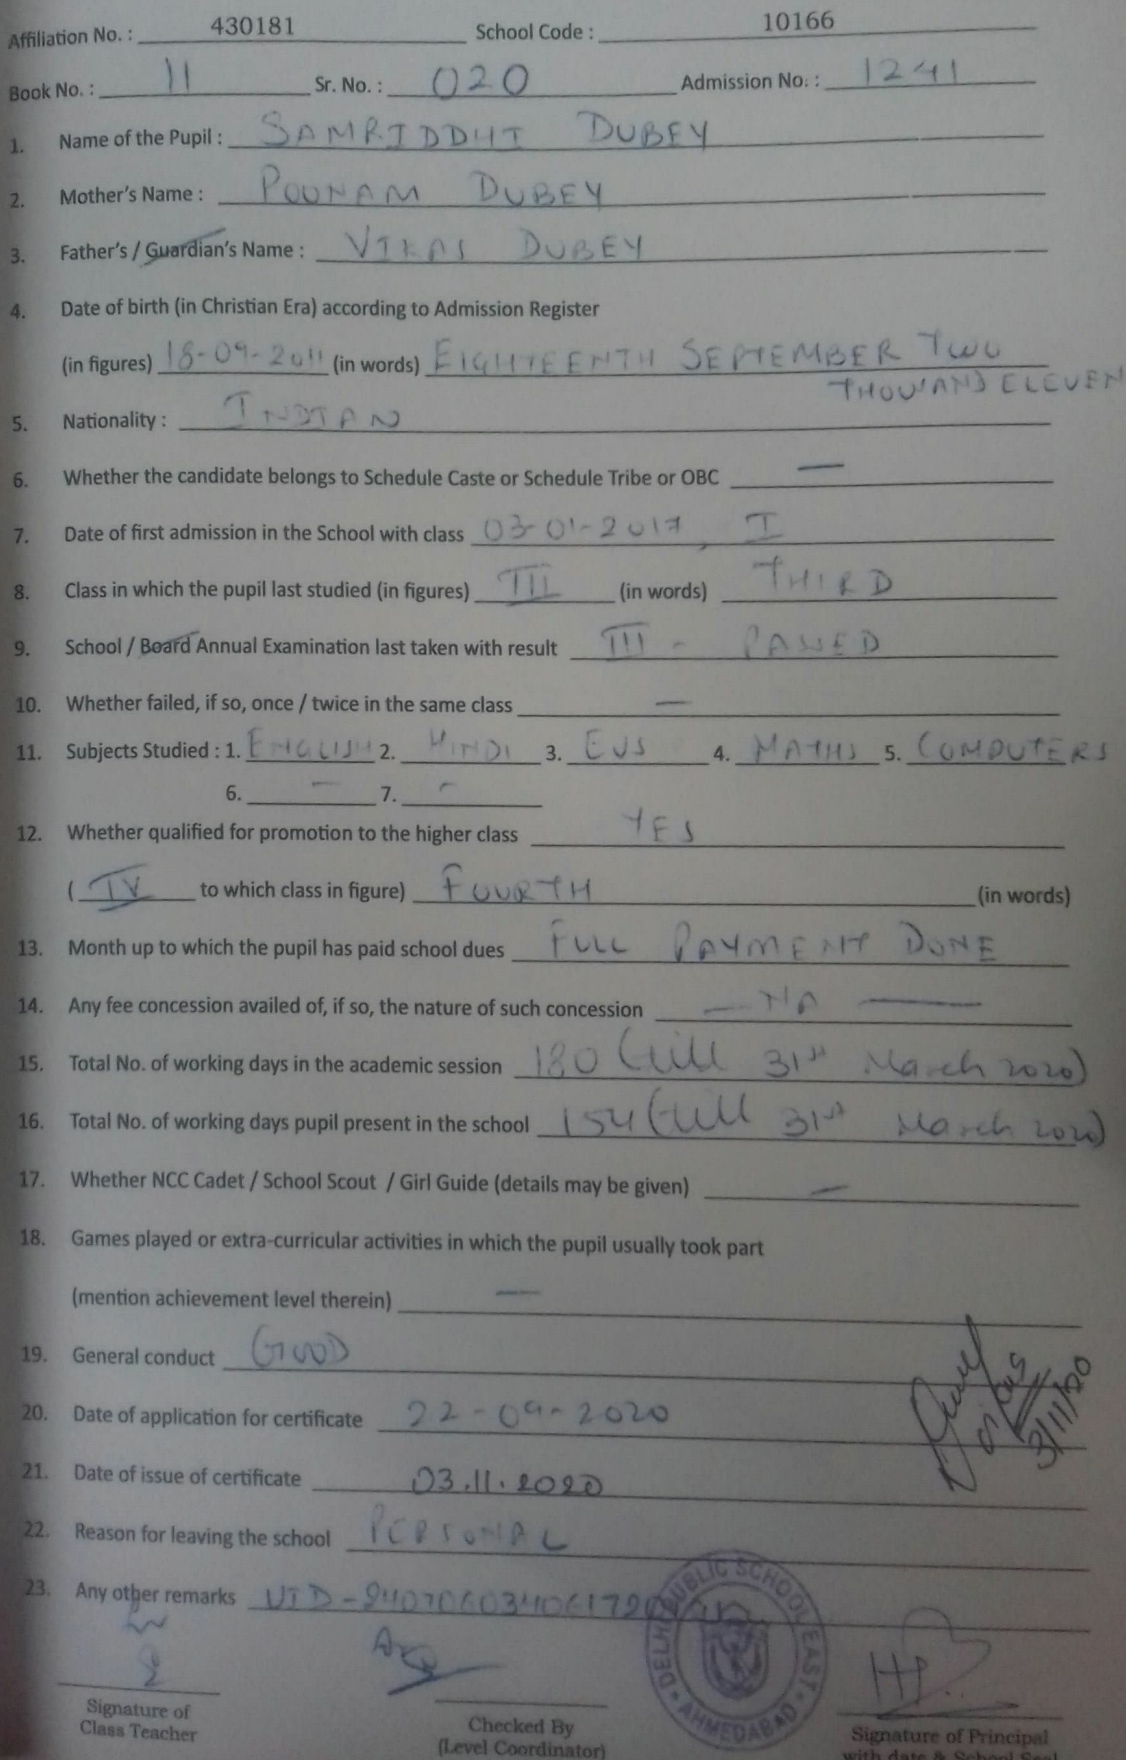 Affiliation No. : 430181 School Code : 10166
Book No. : 11 Sr. No. : 020 Admission No. : 1241
1. Name of the Pupil : SAMRIDDHI DUBEY
2. Mother's Name : POONAM DUBEY
3. Father's / Guardian's Name : VIKAS DUBEY
4. Date of birth (in Christian Era) according to Admission Register
(in figures) 18-09-2011 (in words) EIGHTEENTH SEPTEMBER TWO
THOUSAND ELEVEN
5. Nationality : INDIAN
6. Whether the candidate belongs to Schedule Caste or Schedule Tribe or OBC —
7. Date of first admission in the School with class 03-01-2017, I
8. Class in which the pupil last studied (in figures) III (in words) THIRD
9. School / Board Annual Examination last taken with result III - PASSED
10. Whether failed, if so, once / twice in the same class —
11. Subjects Studied : 1. ENGLISH 2. HINDI 3. EVS 4. MATHS 5. COMPUTERS
6. — 7. -
12. Whether qualified for promotion to the higher class YES
( IV to which class in figure) FOURTH (in words)
13. Month up to which the pupil has paid school dues FULL PAYMENT DONE
14. Any fee concession availed of, if so, the nature of such concession — NA —
15. Total No. of working days in the academic session 180 (till 31st March 2020)
16. Total No. of working days pupil present in the school 154 (till 31st March 2020)
17. Whether NCC Cadet / School Scout / Girl Guide (details may be given) —
18. Games played or extra-curricular activities in which the pupil usually took part
(mention achievement level therein) —
19. General conduct GOOD
20. Date of application for certificate 22-09-2020
3/11/20
21. Date of issue of certificate 03.11.2020
22. Reason for leaving the school PERSONAL
23. Any other remarks UID -
DELHI PUBLIC SCHOOL EAST • AHMEDABAD •
Signature of
Class Teacher
Checked By
(Level Coordinator)
Signature of Principal
with date & School